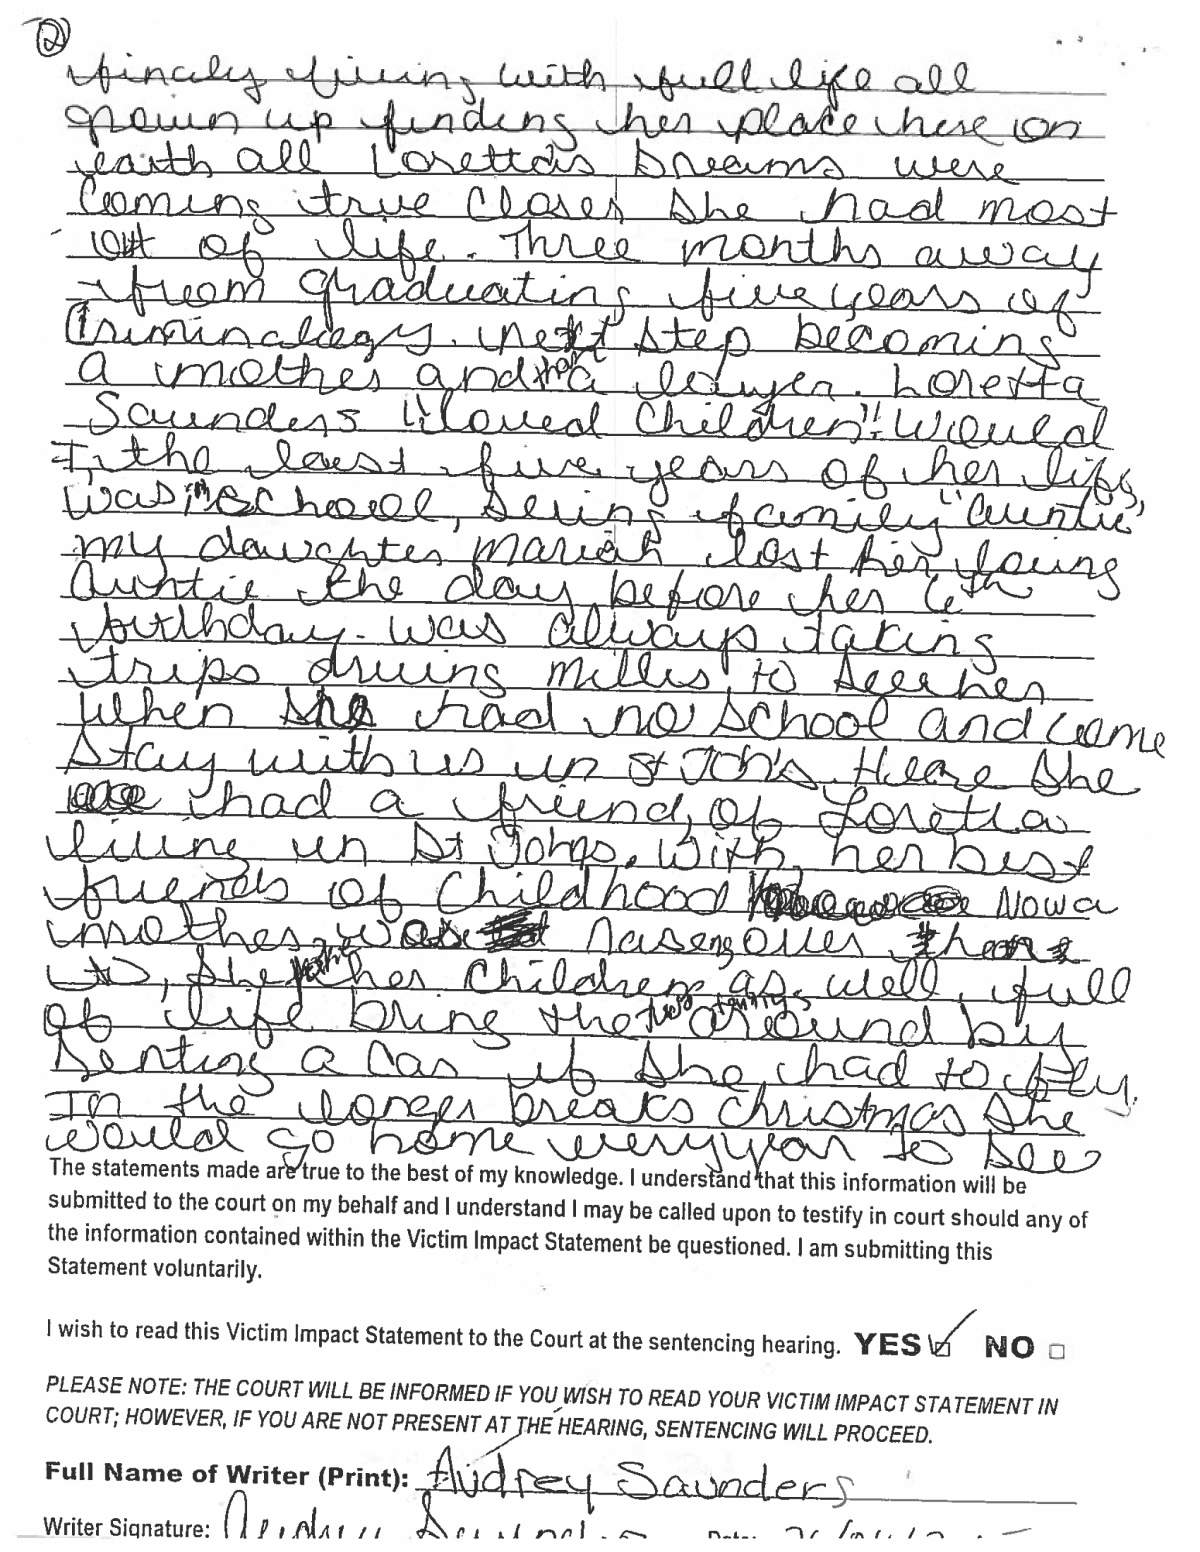 2
finaly living with full life all
grown up finding her place here on
earth all Loretta's Dreams were
Coming true Closer She had most
out of life. Three months away
from graduating five years of
Criminology. next Step becoming
a mother and than a lawyer. Loretta
Saunders "loved Children"! Would
I, the last five years of her life,
was in school, being family "auntie"
my daughter mariah lost her loving
Auntie the day before her 6th
birthday. was always taking
trips driving milles to see her
when she had no school and come
Stay with us in St Joh's. Hease She
had a friend, of Loretta
living in St Johns, with her best
friends of Childhood Now a
mother, was
to, she her Children as well, full
of life bring the two family around by
Renting a Car if she had to fly.
In the longer breaks Christmas She
would go home very year to see
The statements made are true to the best of my knowledge. I understand that this information will be
submitted to the court on my behalf and I understand I may be called upon to testify in court should any of
the information contained within the Victim Impact Statement be questioned. I am submitting this
Statement voluntarily.
I wish to read this Victim Impact Statement to the Court at the sentencing hearing. YES NO
PLEASE NOTE: THE COURT WILL BE INFORMED IF YOU WISH TO READ YOUR VICTIM IMPACT STATEMENT IN
COURT; HOWEVER, IF YOU ARE NOT PRESENT AT THE HEARING, SENTENCING WILL PROCEED.
Full Name of Writer (Print): Audrey Saunders
Writer Signature: Audrey Saunders Date: